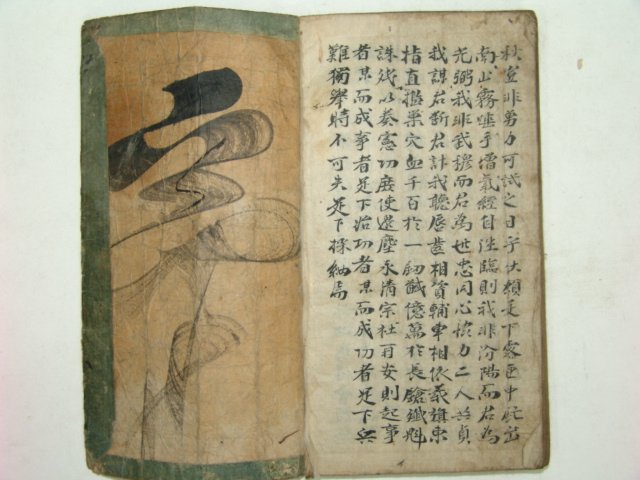 秋豈非努力可試之日乎伏願足下密匣中
南山霧垂手僧氣經自陛臨則我非汾陽而君為
光弼我非武穆而君為世忠同心協力二人共貞
我謀君斷君計我聽唇齒相資輔車相依義旗東
指直擣巢穴血千百於一釖馘億萬於長鎗殲魁
誅殘以奏憲功庶使邊塵永清宗社百安則起事
者某而成事者足下始功者某而成功者足下與
難獨擧時不可失足下採納焉